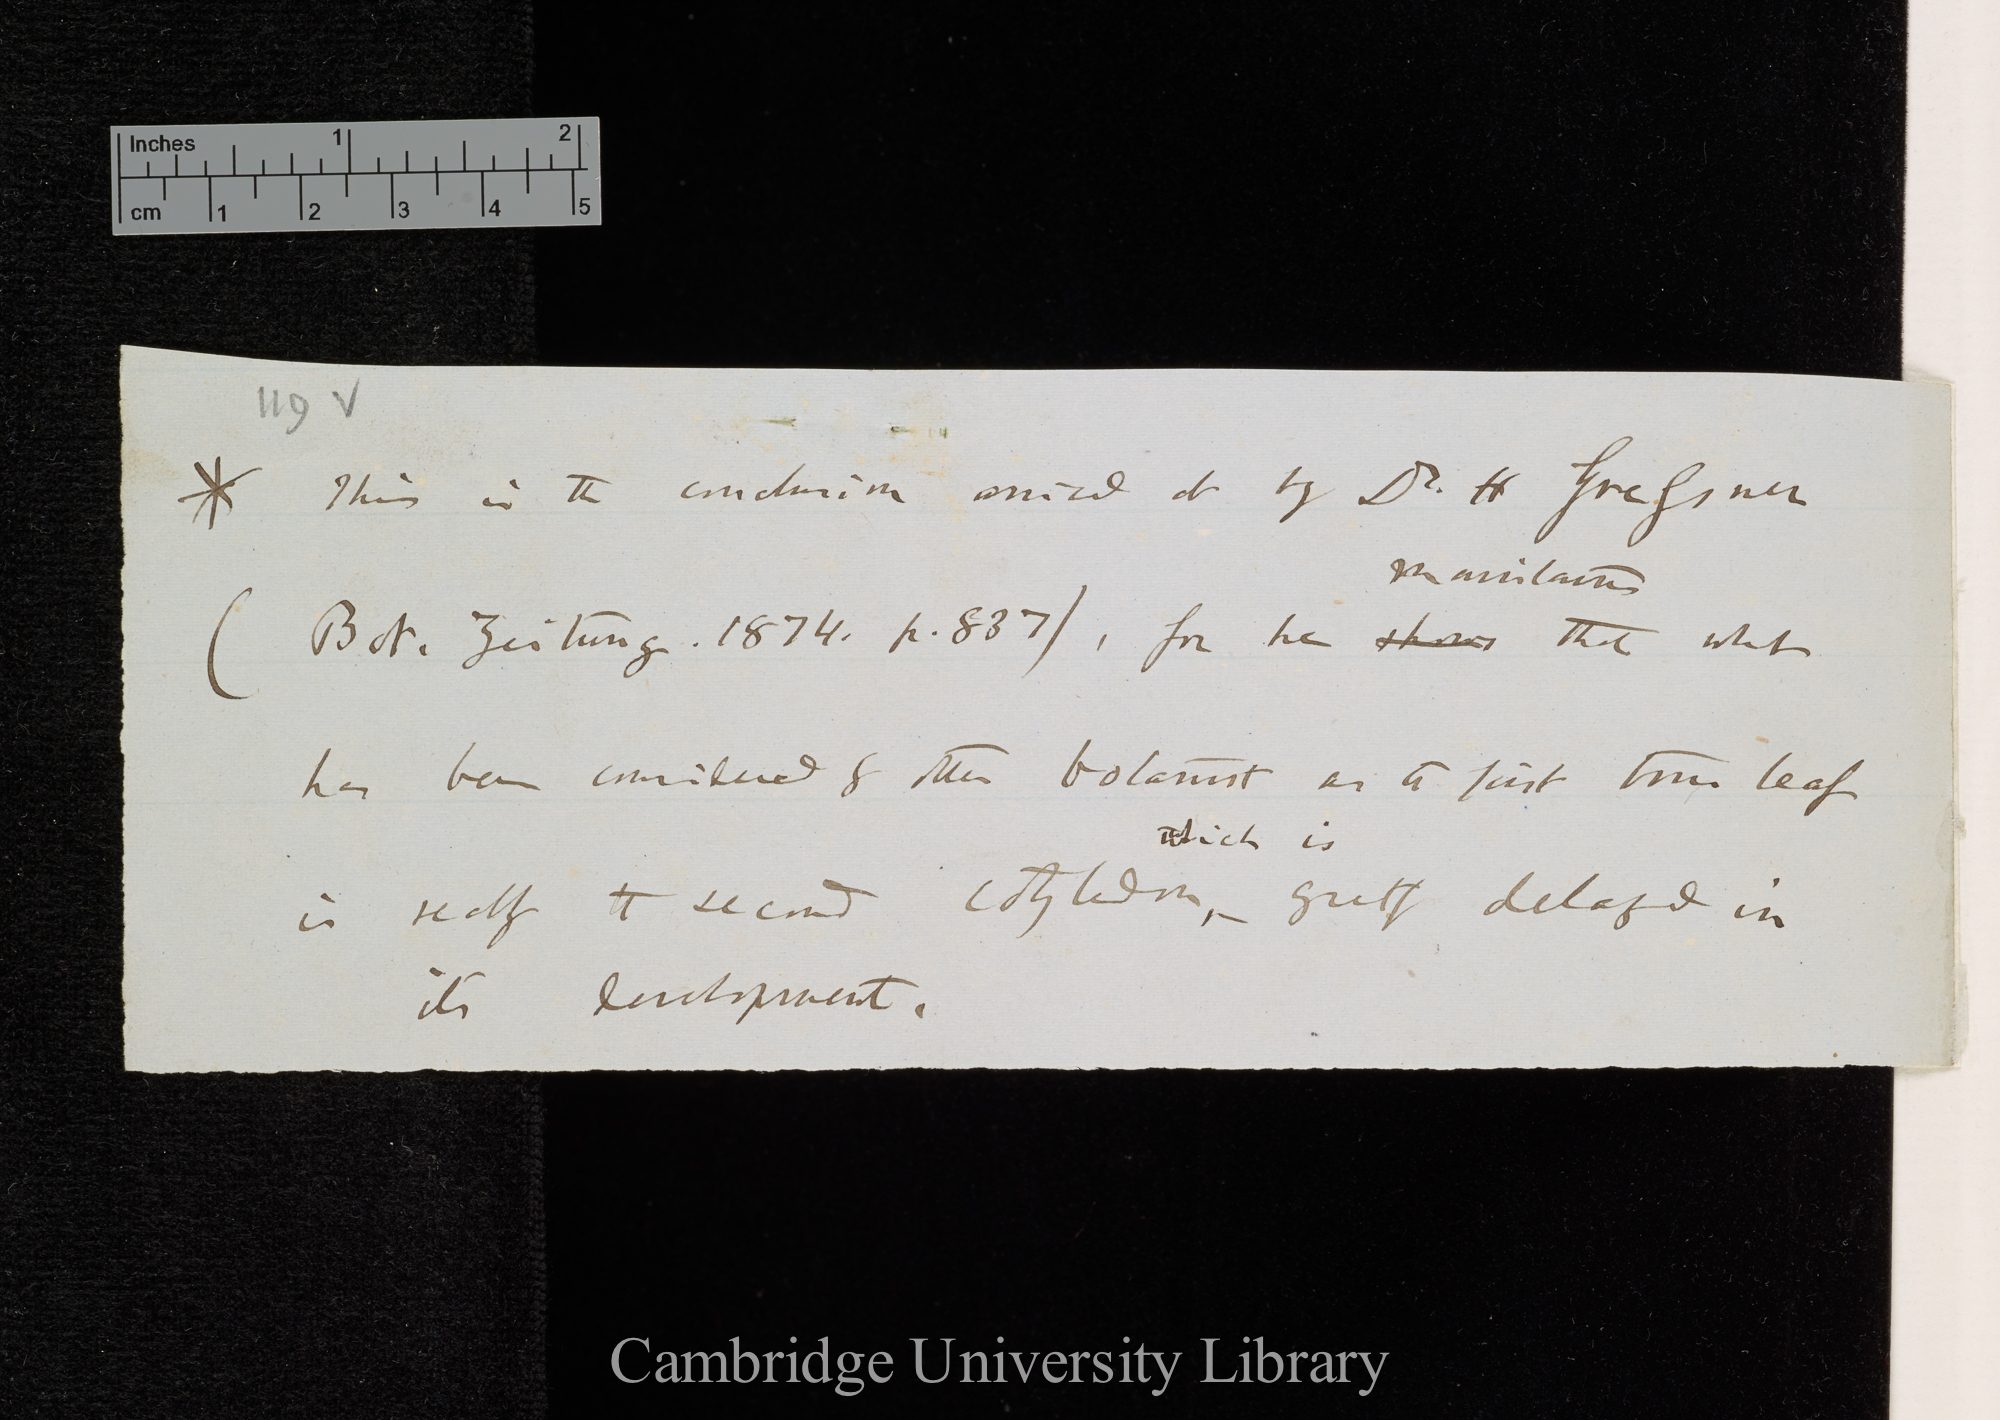 Inches 1 2
cm 1 2 3 4 5
119 v
* This is the conclusion arrived at by Dr. H Gressner
(Bot. Zeitung. 1874. p. 837), for he shows maintains that what
has been considered by other botanist as the first true leaf
is really the second cotyledon, which is greatly delayed in
its development.
Cambridge University Library